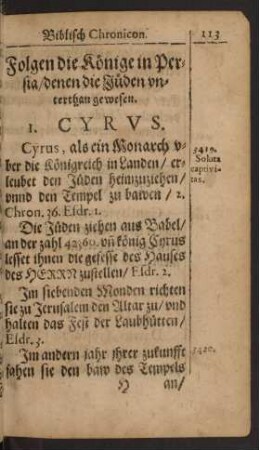 Biblisch Chronicon. 113
Folgen die Könige in Per-
sia/denen die Jüden vn-
terthan gewesen.
1. CYRVS.
Cyrus, als ein Monarch v-
ber die Königreich in Landen/ er-
leubet den Jüden heimzuziehen/
vnnd den Tempel zu bawen/ 2.
Chron. 36. Esdr. 1.
3419.
Soluta
captivi-
tas.
Die Jüden ziehen aus Babel/
an der zahl 42360. vñ könig Cyrus
lesset ihnen die gefesse des Hauses
des HERRN zustellen/ Esdr. 2.
Im siebenden Monden richten
sie zu Jerusalem den Altar zu/ vnd
halten das Fest der Laubhütten/
Esdr. 3.
Im andern jahr ihrer zukunfft
fahen sie den baw des Tempels
3420.
H an/